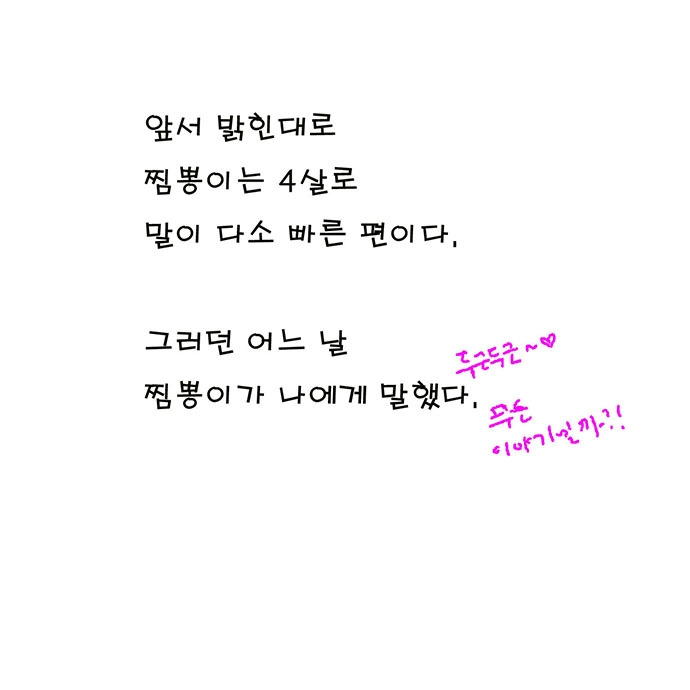 앞서 밝힌대로
찜뽕이는 4살로
말이 다소 빠른 편이다.
그러던 어느 날
찜뽕이가 나에게 말했다.
두근두근~♡
무슨
이야기일까?!